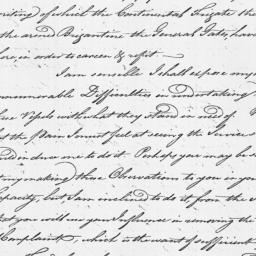 writing of which the Continental Frigate the
the armed Brigantine the General Gates, have
here, in order to careen & refit
I am sensible I shall expose mys
innumerable Difficulties in undertaking
these Vessels with what they stand in need of.
but the Pain I must feel at seeing the Services
would induce me to do it. Perhaps you may be
my making those Observations to you in you
Capacity, but I am inclined to do it from the
that you will use your Influence in removing the
Complaint, which is the want of sufficient